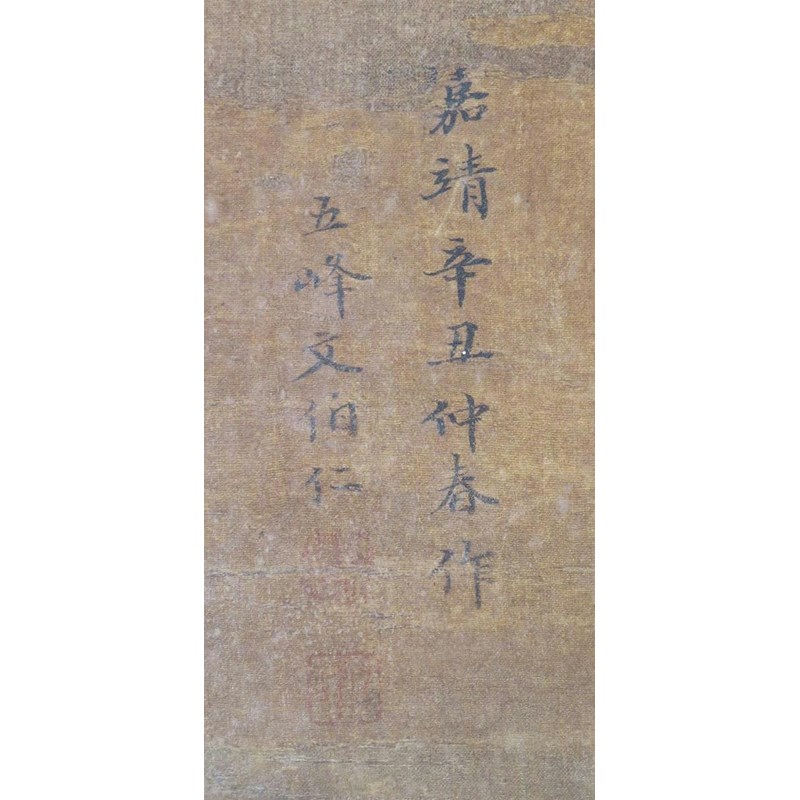 嘉靖辛丑仲春作
五峰文伯仁